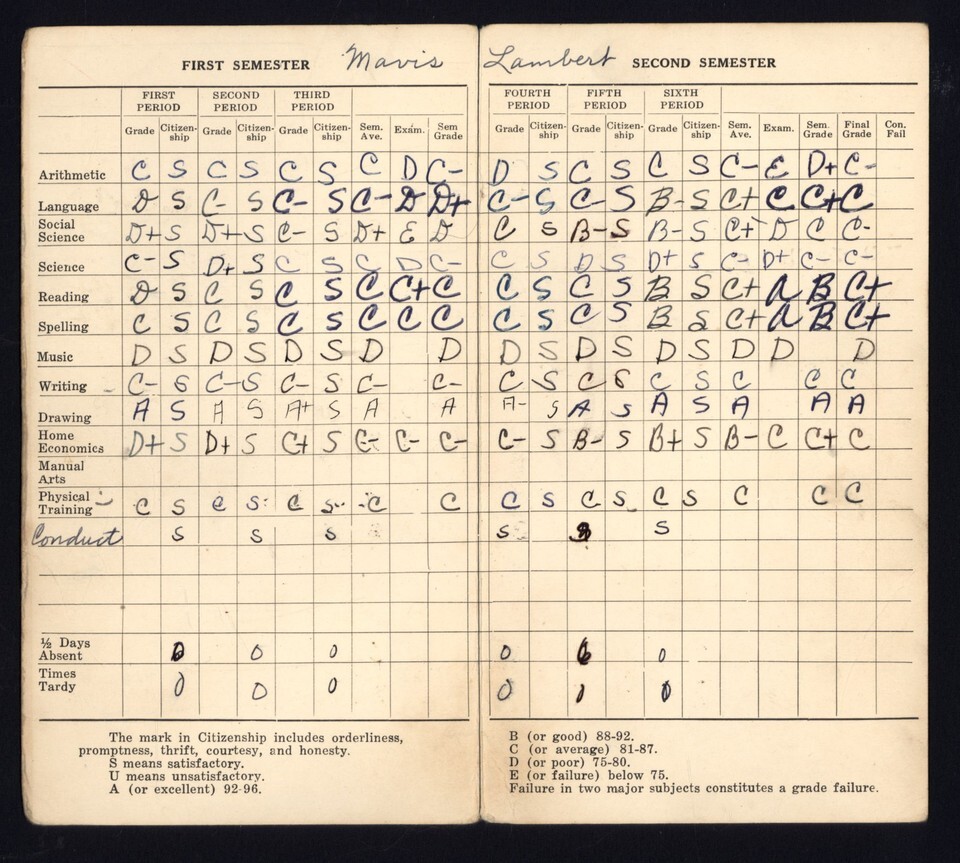 FIRST SEMESTER Mavis Lambert SECOND SEMESTER
FIRST PERIOD SECOND PERIOD THIRD PERIOD FOURTH PERIOD FIFTH PERIOD SIXTH PERIOD
Grade Citizen-ship Grade Citizen-ship Grade Citizen-ship Sem. Ave. Exam. Sem Grade Grade Citizen-ship Grade Citizen-ship Grade Citizen-ship Sem. Ave. Exam. Sem. Grade Final Grade Con. Fail
Arithmetic C S C S C S C D C- D S C S C S C- E D+ C-
Language D S C- S C- S C- D D+ C- S C- S B- S C+ C C+ C
Social Science D+ S D+ S C- S D+ E D C S B- S B- S C+ D C C-
Science C- S D+ S C S C D C- C S D S D+ S C- D+ C- C-
Reading D S C S C S C C+ C C S C S B S C+ A B C+
Spelling C S C S C S C C C C S C S B S C+ A B C+
Music D S D S D S D D D S D S D S D D D
Writing C- S C- S C- S C- C- C S C S C S C C C
Drawing A S A S A+ S A A A- S A S A S A A A
Home Economics D+ S D+ S C+ S C- C- C- C- S B- S B+ S B- C C+ C
Manual Arts
Physical Training C S C S C S C C C S C S C S C C C
Conduct S S S S S
½ Days Absent 0 0 0 0 6 0
Times Tardy 0 0 0 0 1 0
The mark in Citizenship includes orderliness,
promptness, thrift, courtesy, and honesty.
S means satisfactory.
U means unsatisfactory.
A (or excellent) 92-96.
B (or good) 88-92.
C (or average) 81-87.
D (or poor) 75-80.
E (or failure) below 75.
Failure in two major subjects constitutes a grade failure.